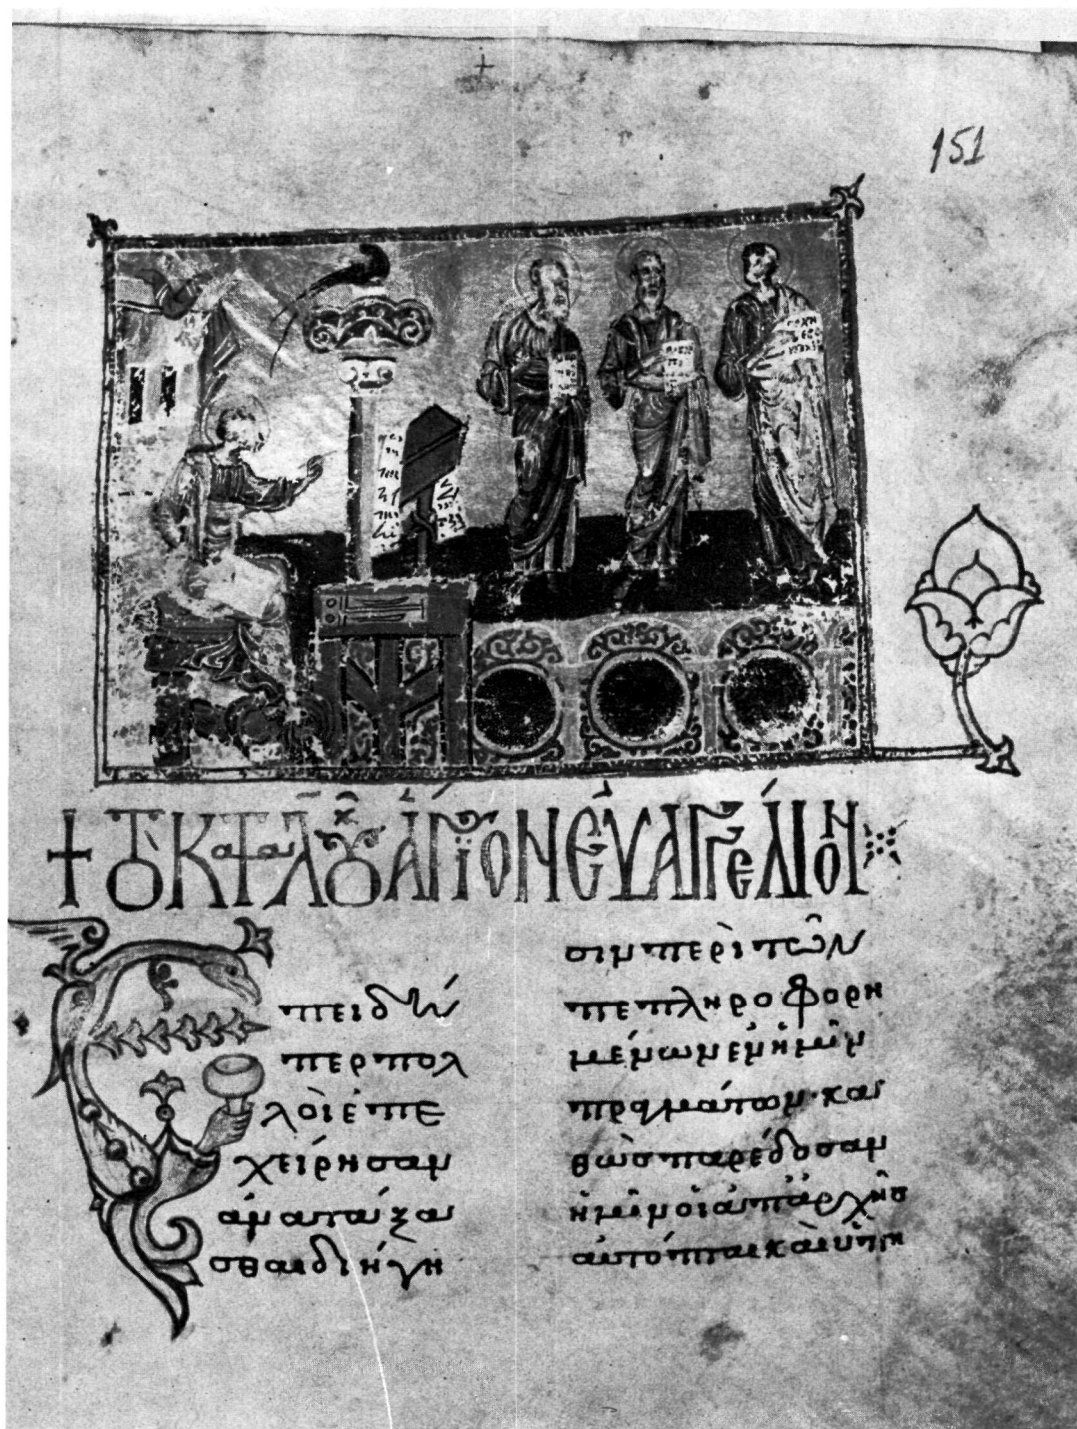 151
+ Τὸ κατὰ Λουκᾶν ἅγιον εὐαγγέλιον
Ἐπειδή
περ πολ
λοὶ ἐπε
χείρησαν
ἀνατάξα
σθαι διήγη
σιν περὶ τῶν
πεπληροφορη
μένων ἐν ἡμῖν
πραγμάτων· κα
θὼς παρέδοσαν
ἡμῖν οἱ ἀπ' ἀρχῆς
αὐτόπται καὶ ὑπη